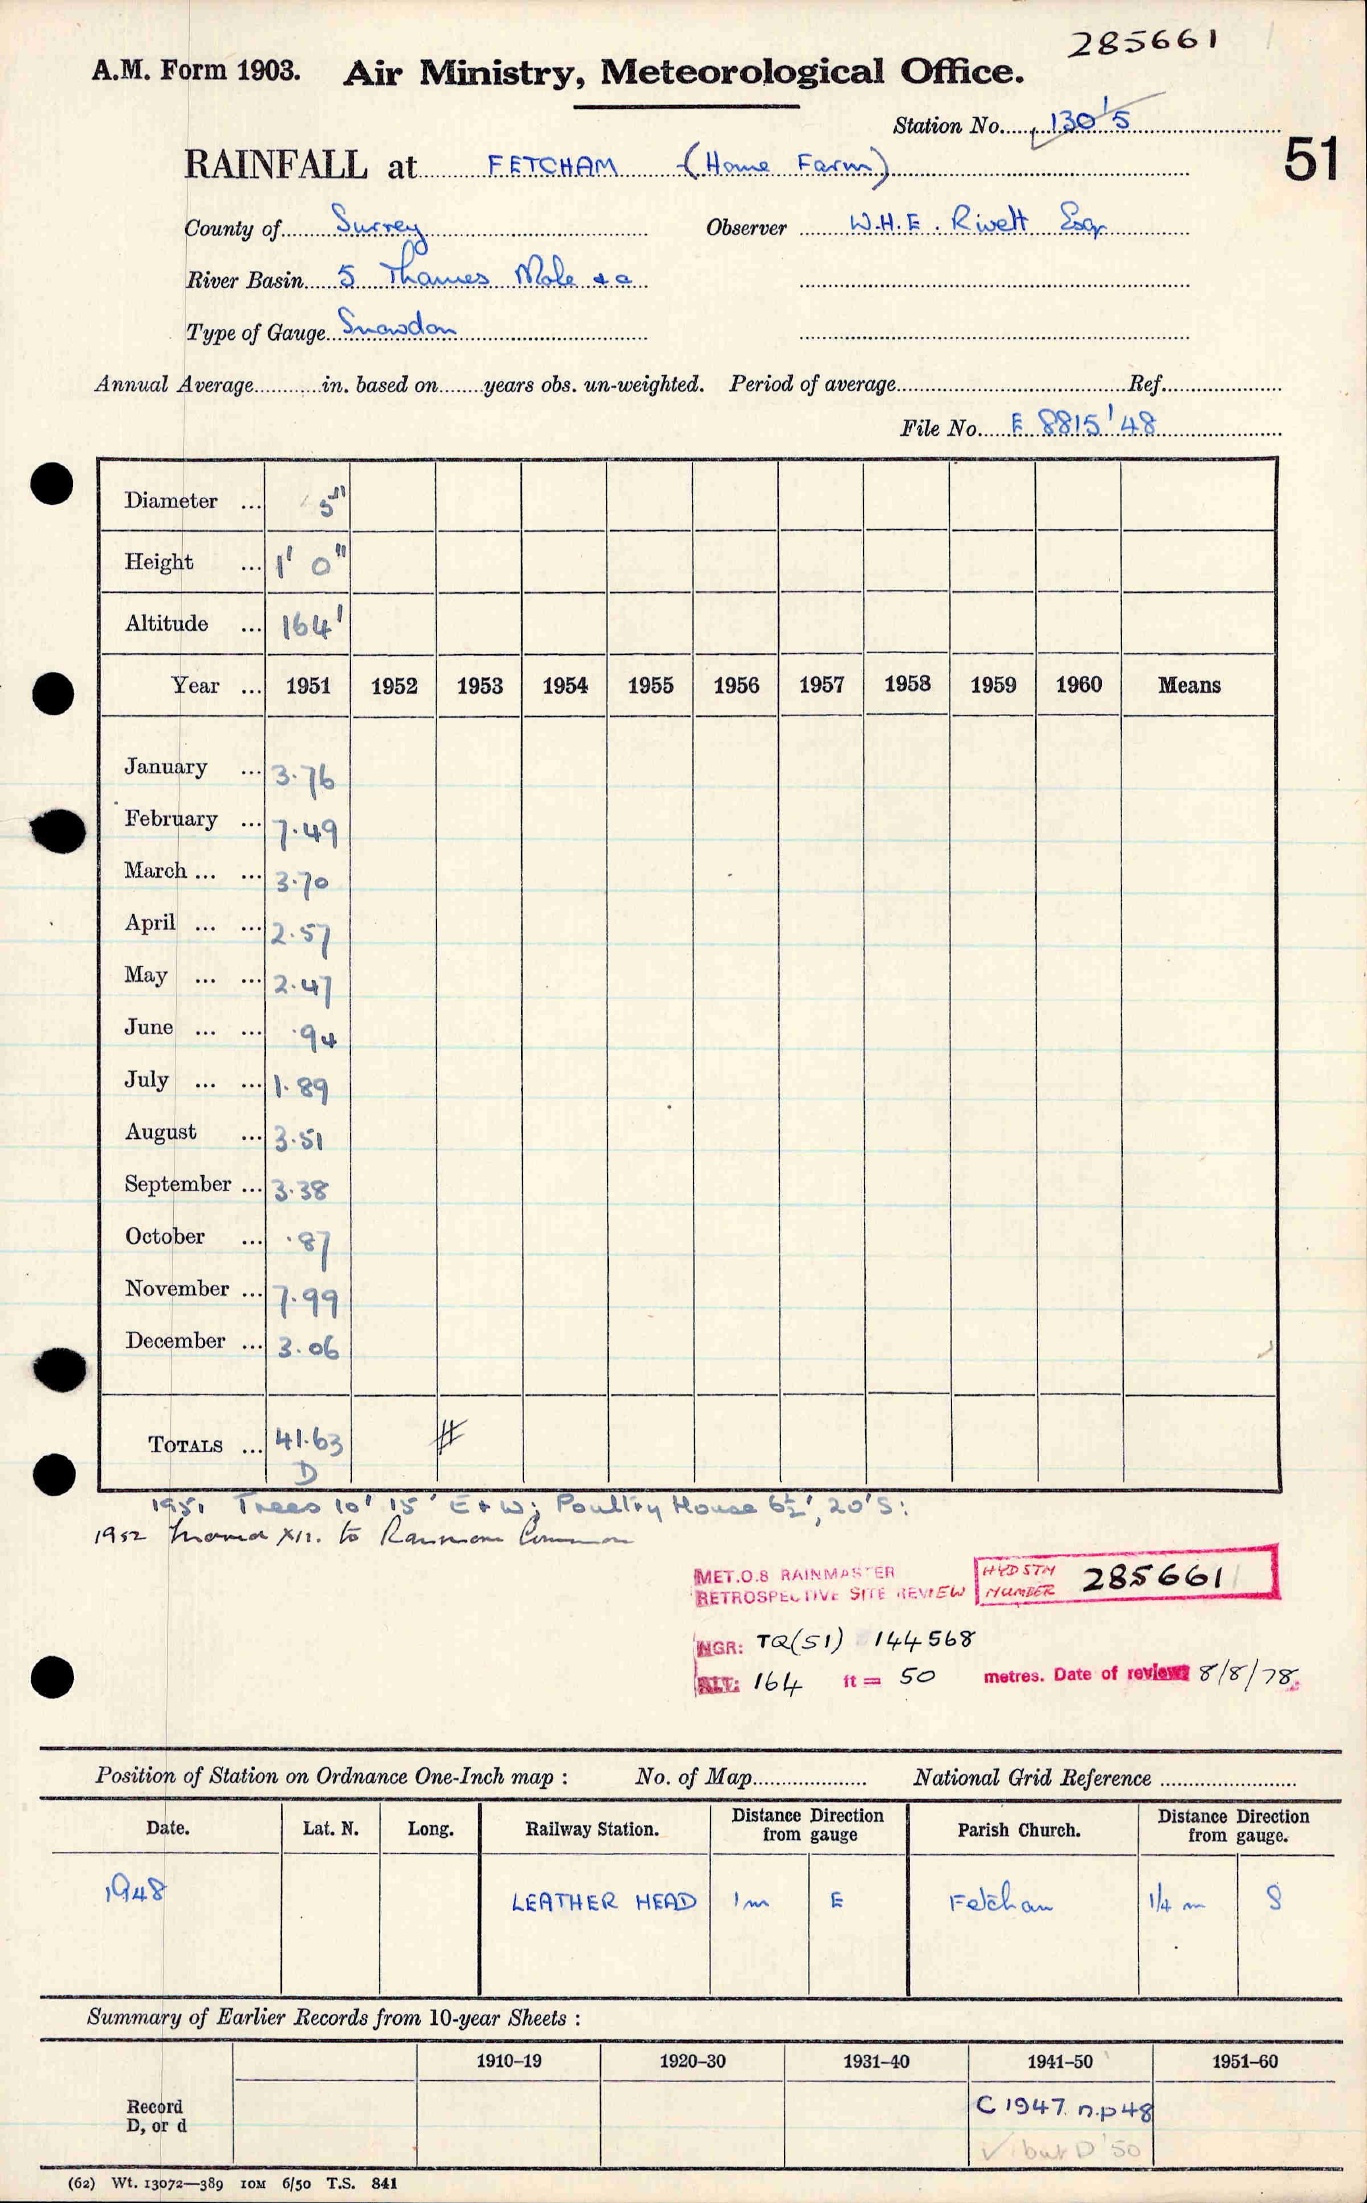 285661
A.M. Form 1903. Air Ministry, Meteorological Office.
Station No. 130'5
51
RAINFALL at FETCHAM (Home Farm)
County of Surrey Observer W.H.E. Rivett Esqr
River Basin 5 Thames Mole + a
Type of Gauge Snowdon
Annual Average in. based on years obs. un-weighted. Period of average Ref.
File No. E 8815'48
Diameter ... 5"
Height ... 1' 0"
Altitude ... 164'
Year ... 1951 1952 1953 1954 1955 1956 1957 1958 1959 1960 Means
January ... 3.76
February ... 7.49
March ... ... 3.70
April ... ... 2.57
May ... ... 2.47
June ... ... .94
July ... ... 1.89
August ... 3.51
September ... 3.38
October ... .87
November ... 7.99
December ... 3.06
TOTALS ... 41.63 #
D
1951 Trees 10' 15' E + W; Poultry House 6½', 20' S:
1952 Moved XII. to Ranmore Common
MET.O.8 RAINMASTER
RETROSPECTIVE SITE REVIEW
HYD STN NUMBER 285661
NGR: TQ(51) 144568
ALT: 164 ft = 50 metres. Date of review: 8/8/78
Position of Station on Ordnance One-Inch map : No. of Map National Grid Reference
Date. Lat. N. Long. Railway Station. Distance Direction from gauge Parish Church. Distance Direction from gauge.
1948 LEATHER HEAD 1m E Fetcham 1/4 m S
Summary of Earlier Records from 10-year Sheets :
1910–19 1920–30 1931–40 1941–50 1951–60
Record D, or d C 1947 n.p 48
✓ but D '50
(62) Wt. 13072—389 10M 6/50 T.S. 841